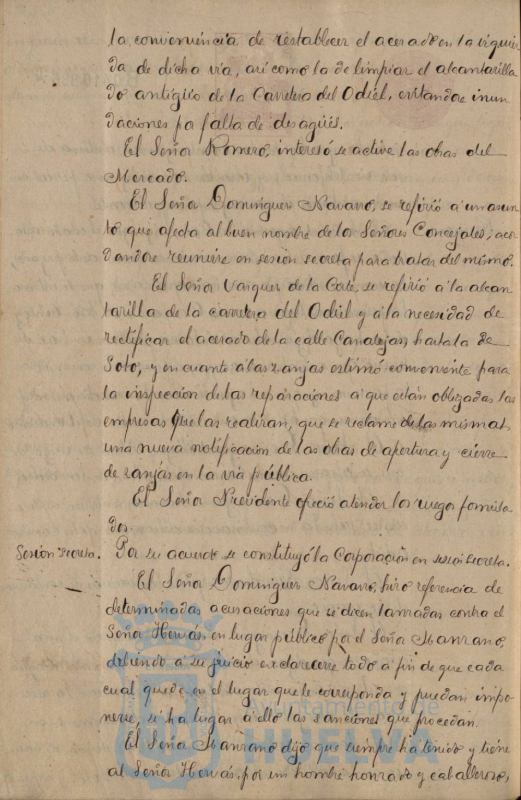 la conveniencia de restablecer el acerado en la izquier
da de dicha via, asi como la de limpiar el alcantarilla
do antigüo de la Carretera del Odiel, evitandose inun
daciones por falta de desagües.
El Señor Romero, interesó se active las obras del
Mercado.
El Señor Dominguez Navarro, se refirió á un asun
to que afecta al buen nombre de los Señores Concejales; acor
dandose reunirse en sesion secreta para tratar del mismo.
El Señor Vazquez de la Corte, se refirió á la alcan
tarilla de la carretera del Odiel y á la necesidad de
rectificar el acerado de la calle Canalejas, hasta la de
Soto, y en cuanto á las zanjas estimó conveniente para
la inspeccion de las reparaciones a que estan obligadas las
empresas que las realizan, que se reclame de las mismas,
una nueva notificacion de las obras de apertura y cierre
de zanjas en la via pública.
El Señor Presidente ofreció atender los ruegos formula
dos.
Sesion secreta. Por su acuerdo se constituyó la Corporacion en sesion secreta.
El Señor Dominguez Navarro, hizo referencia de
determinadas acusaciones que se dicen lanzadas contra el
Señor Hervás, en lugar público por el Señor Manzano,
debiendo a su juicio exclarecerse todo a fin de que cada
cual quede en el lugar que le corresponda y puedan impo
nerse, si ha lugar a ello las sanciones que procedan.
El Señor Manzano dijo que siempre ha tenido y tiene
al Señor Hervás, por un hombre honrado y caballeroso,
Ayuntamiento de
HUELVA